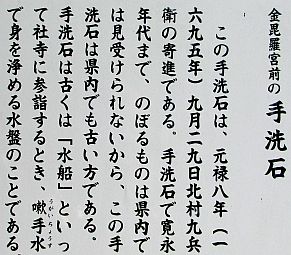 金毘羅宮前の 手洗石
この手洗石は、元禄八年（一
六九五年）九月二九日北村九兵
衛の寄進である。手洗石で寛永
年代まで、のぼるものは県内で
は見受けられないから、この手
洗石は県内でも古い方である。
手洗石は古くは「水船」といっ
て社寺に参詣するとき、嗽手水
うがいちょうず
で身を浄める水盤のことである。